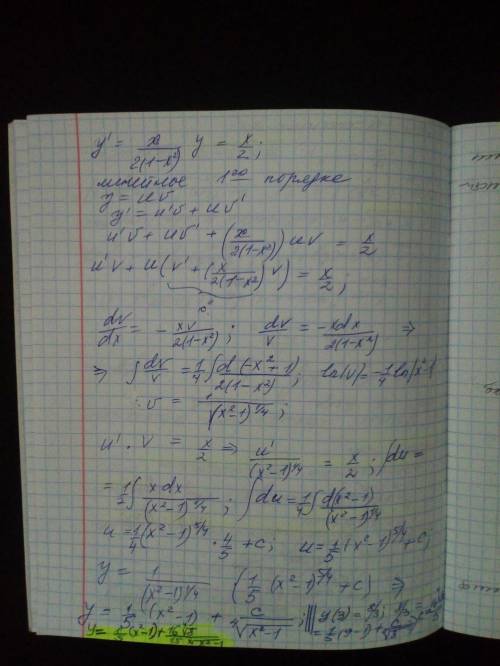 y' = x/(2(1-x²)) y = x/2;
линейное 1го порядка
y = uv
y' = u'v + uv'
u'v + uv' + (x/(2(1-x²))) uv = x/2
u'v + u(v' + (x/(2(1-x²)) v) = x/2;
dv/dx = - xv/(2(1-x²)); dv/v = -xdx/(2(1-x²)) ⇒
⇒ ∫ dv/v = 1/4 ∫ d(-x²+1)/(2(1-x²)); ln(v) = -1/4 ln|x²-1|
v = 1/(x²-1)^1/4;
u' · v = x/2 ⇒ u'/(x²-1)^1/4 = x/2; ∫du =
= 1/2 ∫ x dx/(x²-1)^1/4; ∫du = 1/4 ∫ d(x²-1)/(x²-1)^1/4
u = 1/4 (x²-1)^5/4 · 4/5 + c; u = 1/5 (x²-1)^5/4 + c;
y = 1/(x²-1)^1/4 (1/5 (x²-1)^5/4 + c) ⇒
y = 1/5 (x²-1) + c/⁴√(x²-1); y(3) = 2/3;
= 1/5 (9-1) +
y = 1/5 (x²-1) +